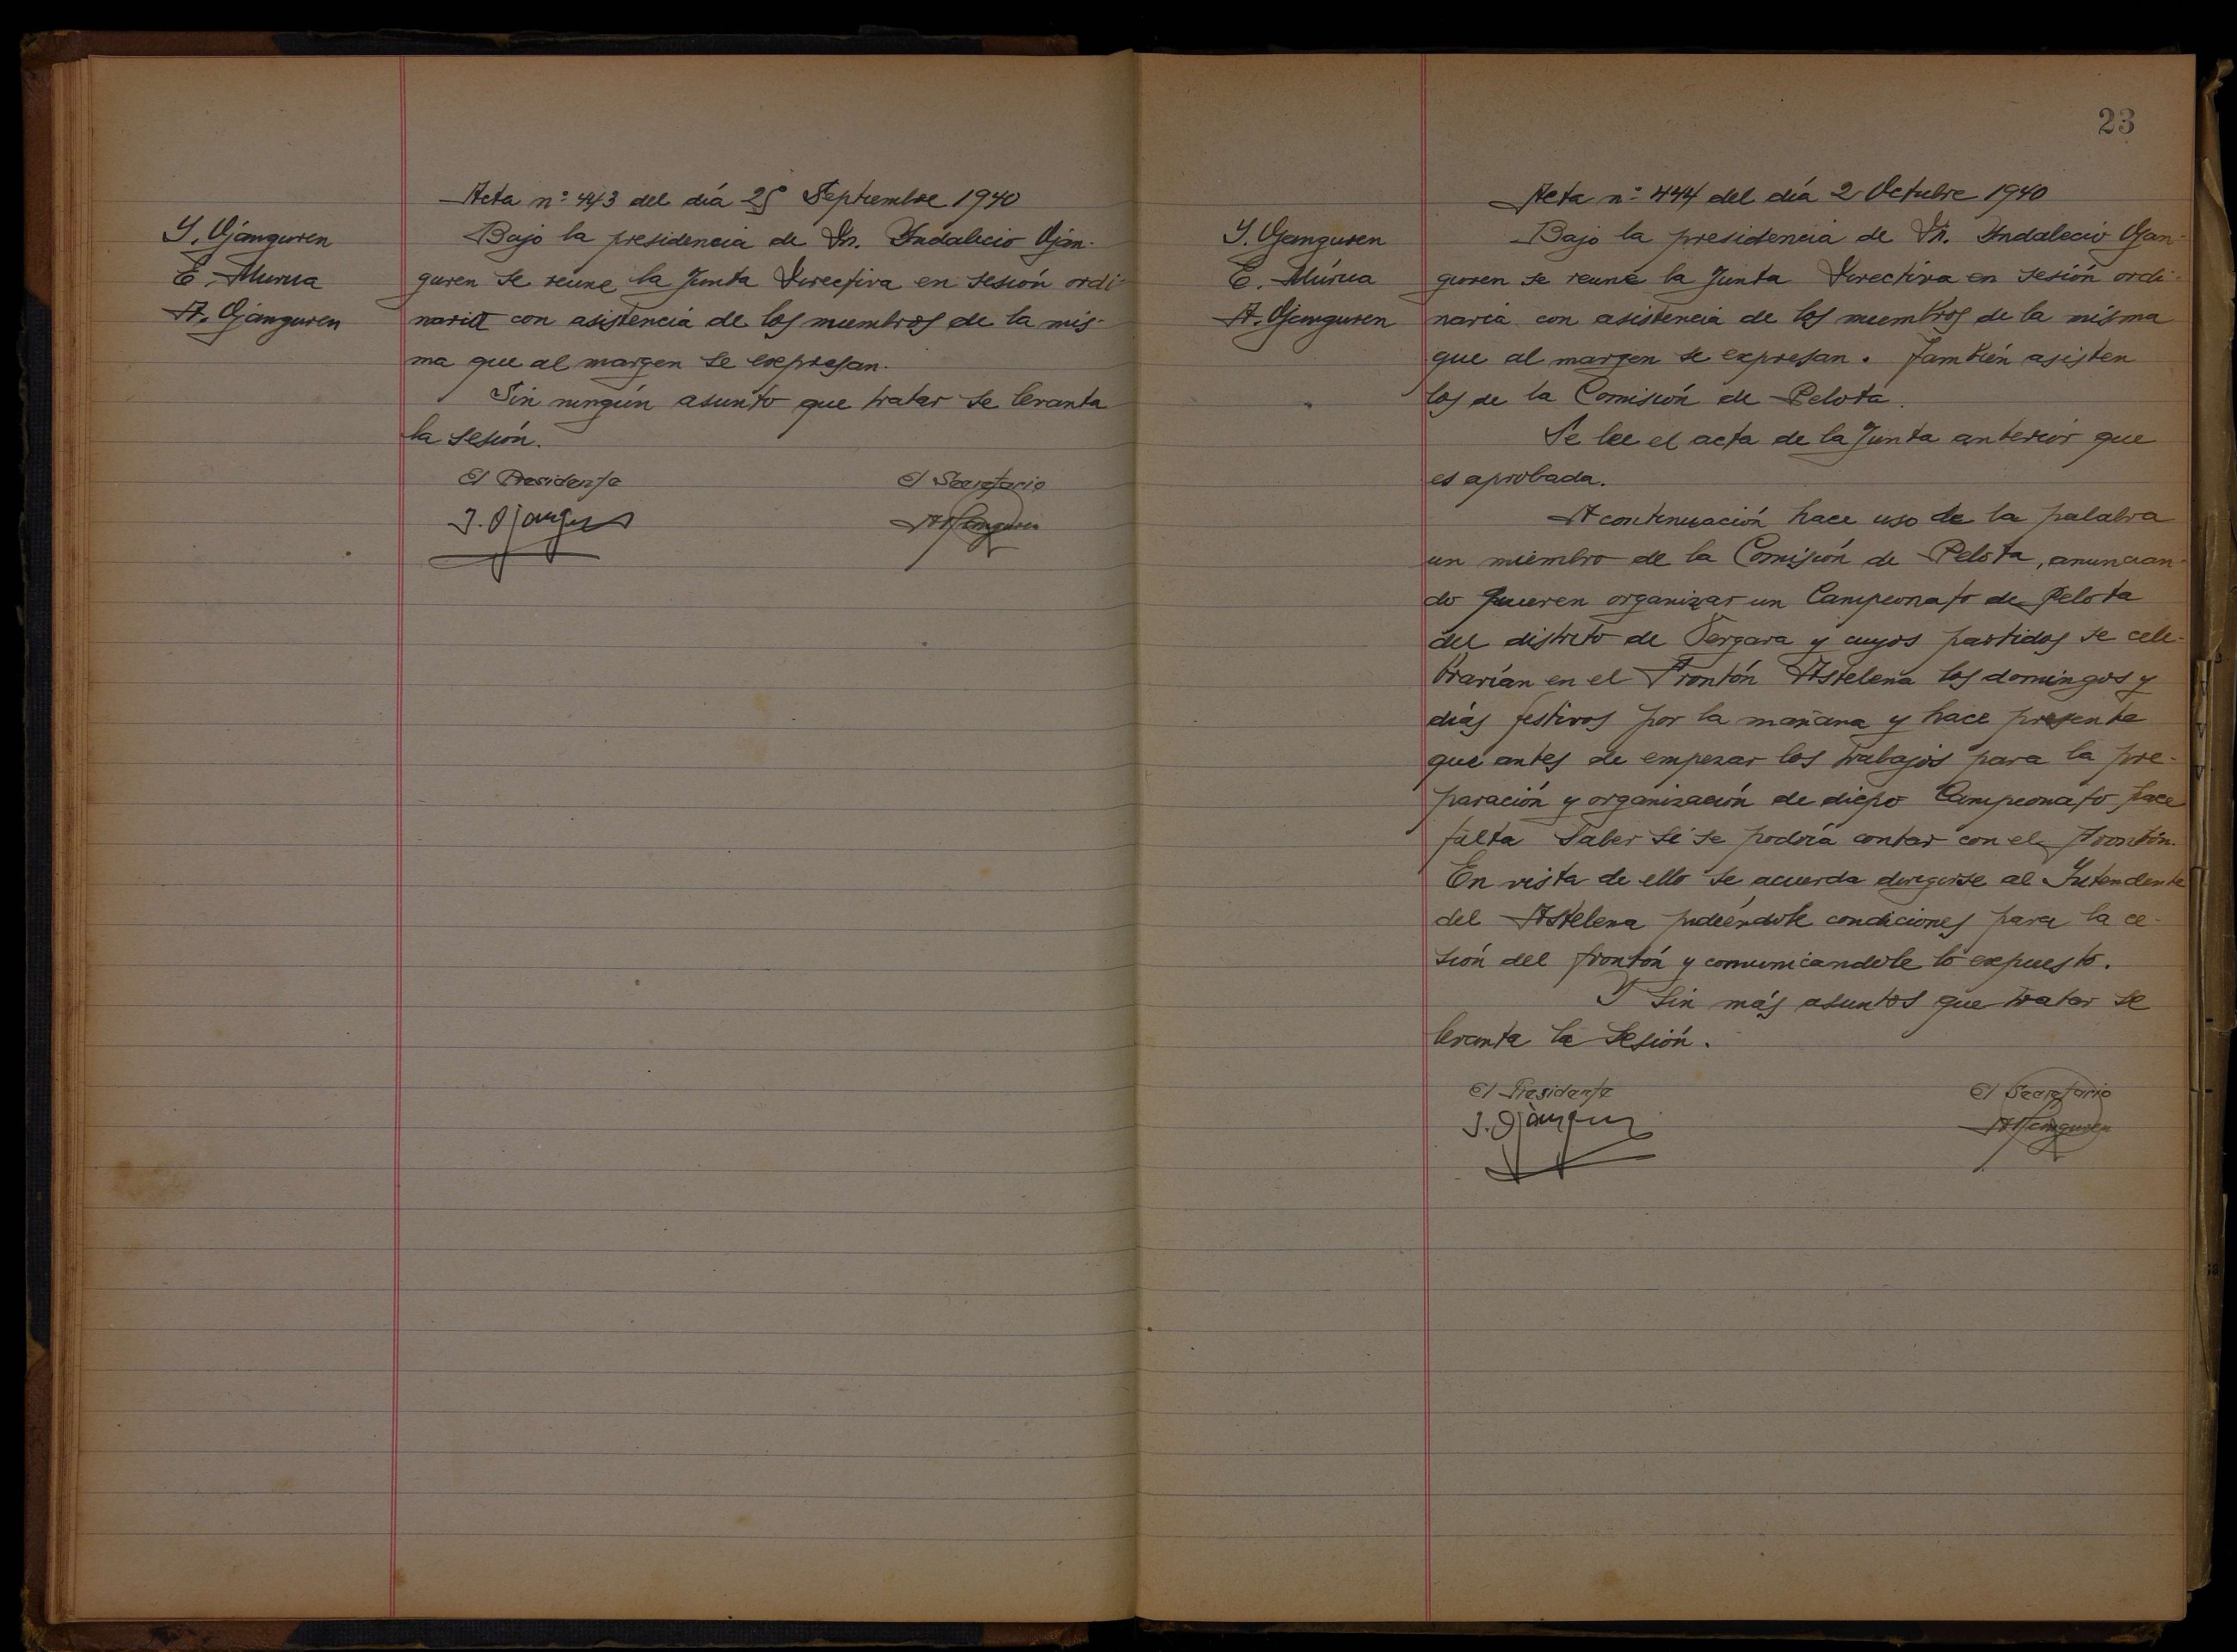 Acta nº 443 del día 25 Septiembre 1940
I. Ojanguren
E. Murua
A. Ojanguren
Bajo la presidencia de Dn. Indalecio Ojan-
guren se reune la Junta Directiva en sesión ordi-
naria con asistencia de los miembros de la mis-
ma que al margen se expresan.
Sin ningún asunto que tratar se levanta
la sesión.
El Presidente El Secretario
I. Ojanguren A. Ojanguren
23
Acta nº 444 del día 2 Octubre 1940
I. Ojanguren
E. Múrua
A. Ojanguren
Bajo la presidencia de Dn. Indalecio Ojan-
guren se reune la Junta Directiva en sesión ordi-
naria con asistencia de los miembros de la misma
que al margen se expresan. También asisten
los de la Comisión de Pelota.
Se lee el acta de la Junta anterior que
es aprobada.
A continuación hace uso de la palabra
un miembro de la Comisión de Pelota, anuncian-
do quieren organizar un Campeonato de Pelota
del distrito de Vergara y cuyos partidos se cele-
brarían en el Frontón Astelena los domingos y
días festivos por la mañana y hace presente
que antes de empezar los trabajos para la pre-
paración y organización de dicho Campeonato hace
falta saber si se podría contar con el Frontón.
En vista de ello se acuerda dirigirse al Intendente
del Astelena pidiéndole condiciones para la ce-
sión del frontón y comunicandole lo expuesto.
Y sin más asuntos que tratar se
levanta la sesión.
El Presidente El Secretario
I. Ojanguren A. Ojanguren